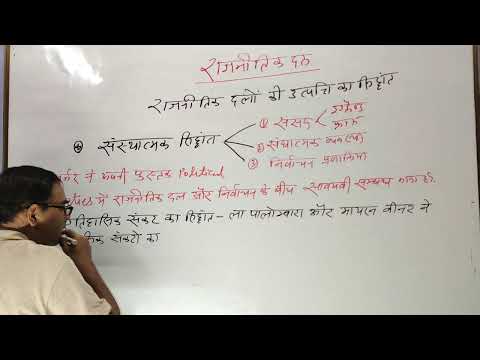 राजनीतिक दल
राजनीतिक दलों की उत्पत्ति का सिद्धांत
संस्थात्मक सिद्धांत
① संसद
उद्भव
कार्य
② संघात्मक व्यवस्था
③ निर्वाचन प्रणालियां
ने अपनी पुस्तक Political
में राजनीतिक दल और निर्वाचन के बीच सावयवी सम्बन्ध माना है.
संकट का सिद्धांत - ला पालोम्बारा और मायरन वीनर ने
संकटो का